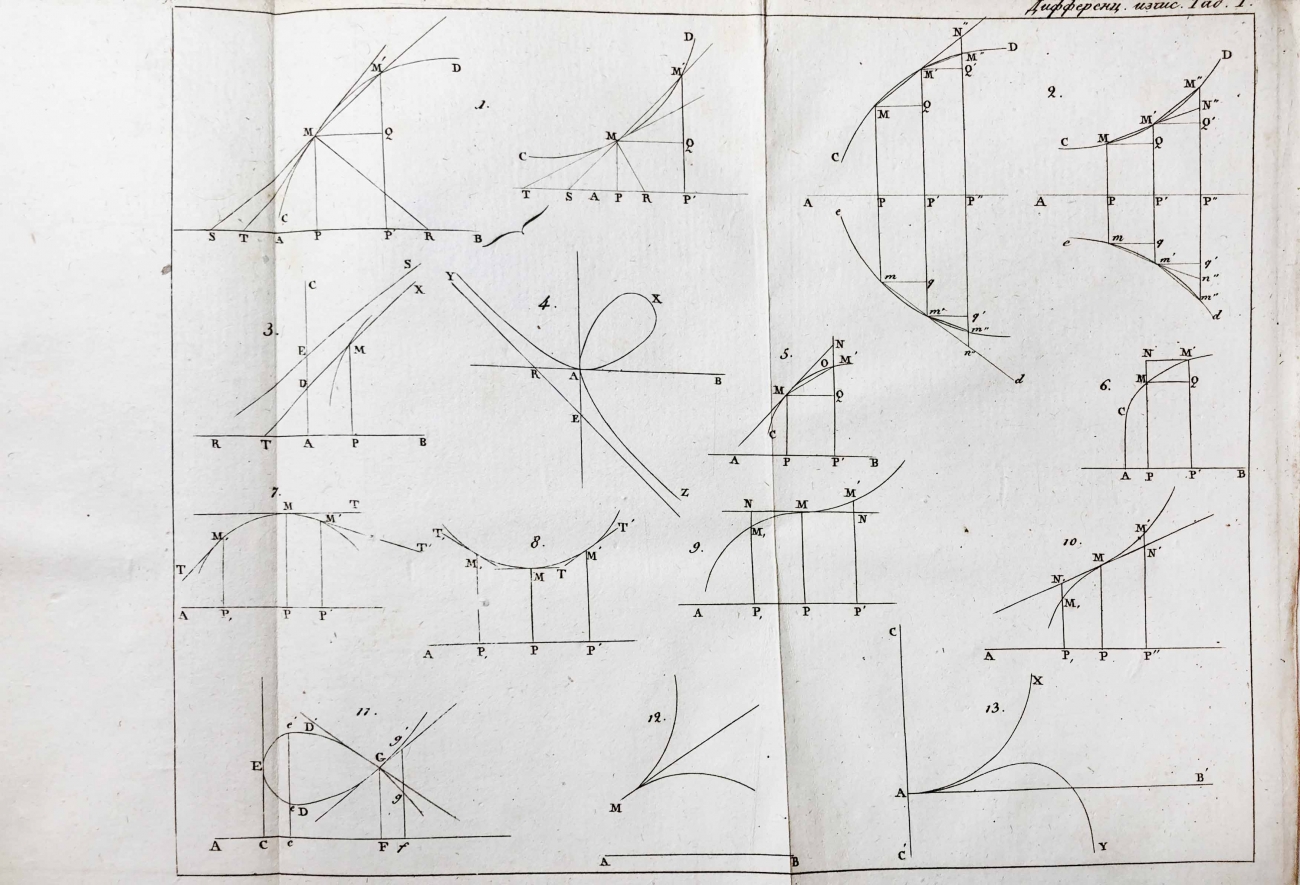 Дифференц. изчис. Таб. I.
1.
M' D
M Q
C
S T A P P' R B
D
M'
M
C Q
T S A P R P'
N''
D
M''
M' Q'
M Q
C
A P P' P''
e
m q
m' q'
m''
n''
d
2.
D
M''
N''
M' Q'
C M Q
A P P' P''
e m q
m' q'
n''
m''
d
3.
S
C X
E M
D
R T A P B
4.
Y X
R A B
E
Z
5.
N
O M'
M Q
C
A P P' B
6.
N M'
M Q
C
A P P' B
7.
M T
M, M'
T T'
A P, P P'
8.
T, T'
M, M'
M T
A P, P P'
9.
M'
N M
M, N
A P, P P'
10.
M'
M N'
N,
M,
A P, P P''
11.
e' D g'
E G
e D g
A C c F f
12.
M
A B
13.
C
X
A B'
C' Y